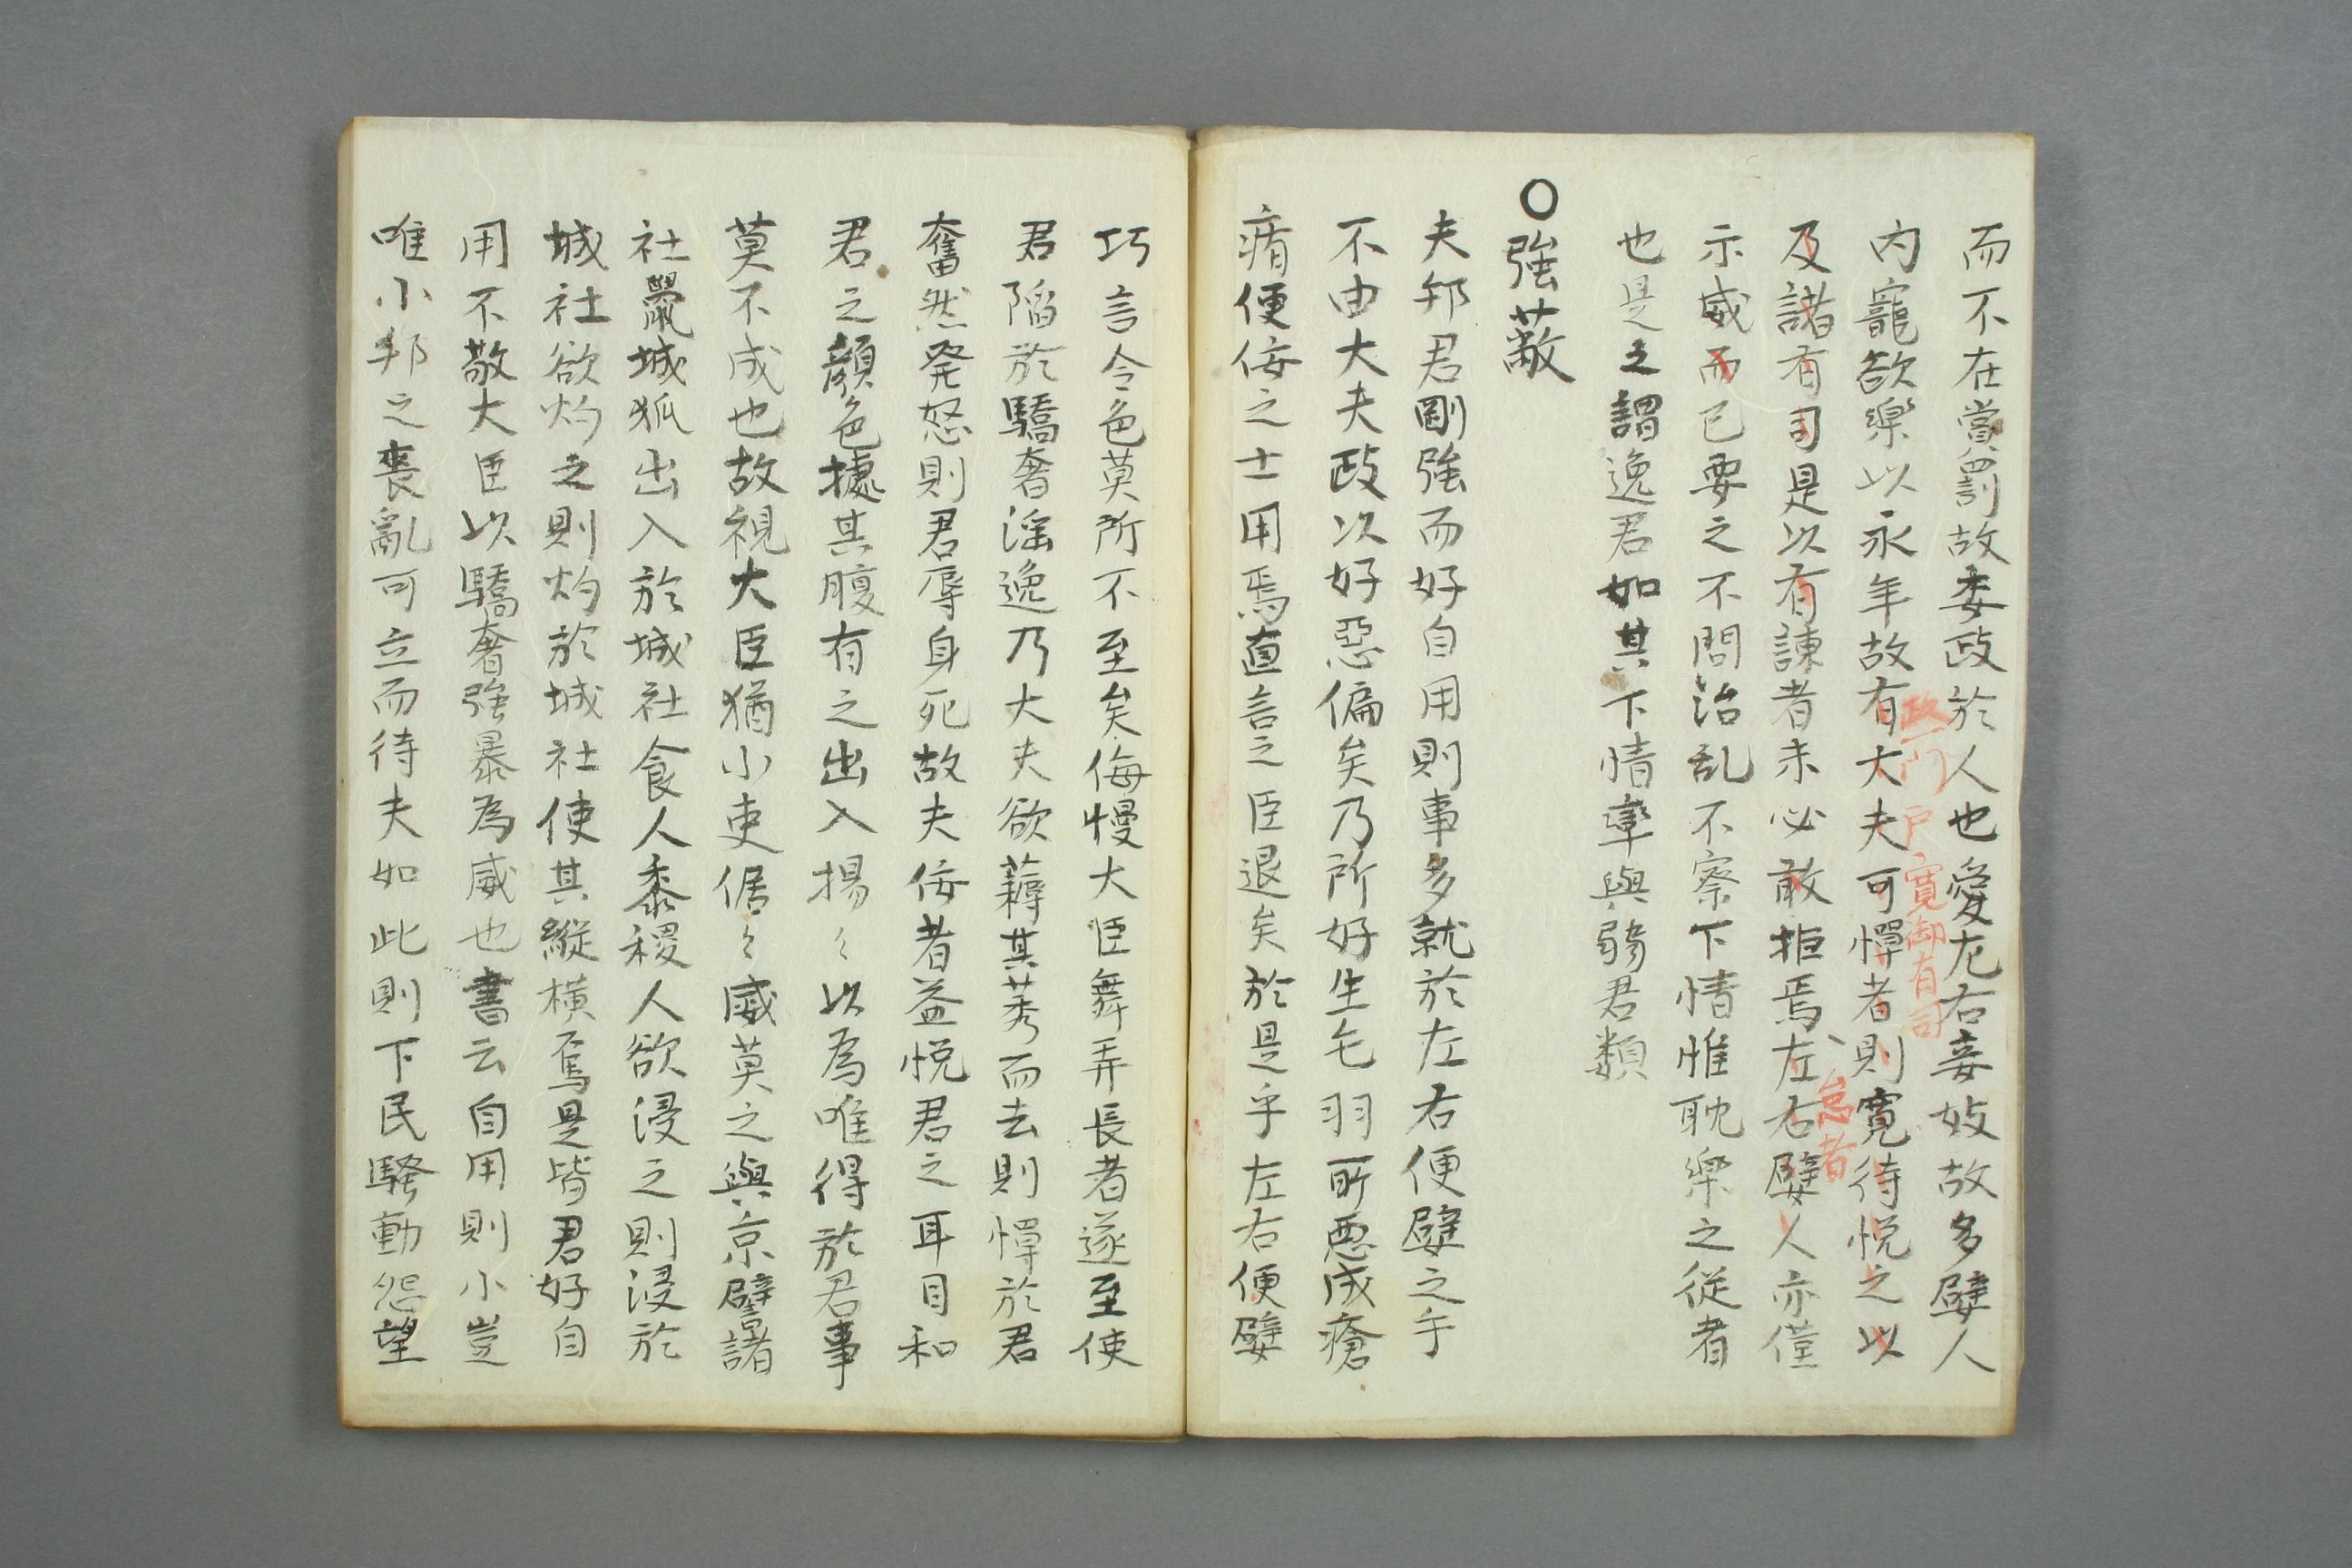 而不在賞罰故委政於人也愛左右妾妓故多嬖人
政一門戸寛御有司
内寵欲樂以永年故有大夫可憚者則寛待悦之以
怠者
及諸有司是以有諫者未必敢拒焉左右嬖人亦僅
示威而已要之不問治乱不察下情惟耽樂之従者
也是之謂逸君如其下情率與弱君類
〇強蔽
夫邦君剛強而好自用則事多就於左右便嬖之手
不由大夫政以好惡偏矣乃所好生毛羽所悪成瘡
痏便佞之士用焉直言之臣退矣於是乎左右便嬖
巧言令色莫所不至矣侮慢大臣舞弄長者遂至使
君陥於驕奢滛逸乃大夫欲薅其莠而去則憚於君
奮然発怒則君辱身死故夫佞者益悦君之耳目和
君之顔色攄其腹有之出入揚々以為唯得於君事
莫不成也故視大臣猶小吏倨々威莫之與京譬諸
社鼠城狐出入於城社食人黍稷人欲浸之則浸於
城社欲灼之則灼於城社使其縦横焉是皆君好自
用不敬大臣以驕奢強暴為威也書云自用則小豈
唯小邦之喪亂可立而待夫如此則下民騒動怨望